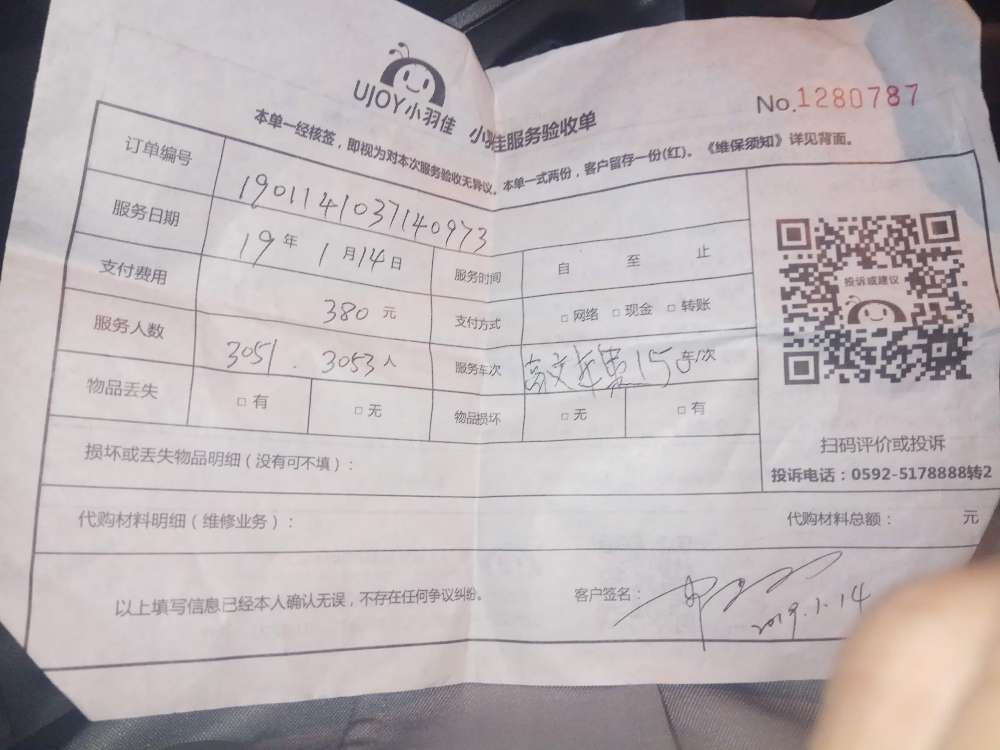 UJOY小羽佳
小羽佳服务验收单
No.1280787
本单一经核签，即视为对本次服务验收无异议。本单一式两份，客户留存一份(红)。《维保须知》详见背面。
订单编号 1901141037140973
服务日期 19年1月14日 服务时间 自 至 止
支付费用 380元 支付方式 □网络 □现金 □转账
服务人数 3051.3053人 服务车次 150车/次
物品丢失 □有 □无 物品损坏 □无 □有
投诉或建议
扫码评价或投诉
投诉电话：0592-5178888转2
损坏或丢失物品明细（没有可不填）：
代购材料明细（维修业务）： 代购材料总额： 元
以上填写信息已经本人确认无误，不存在任何争议纠纷。 客户签名：
2019.1.14